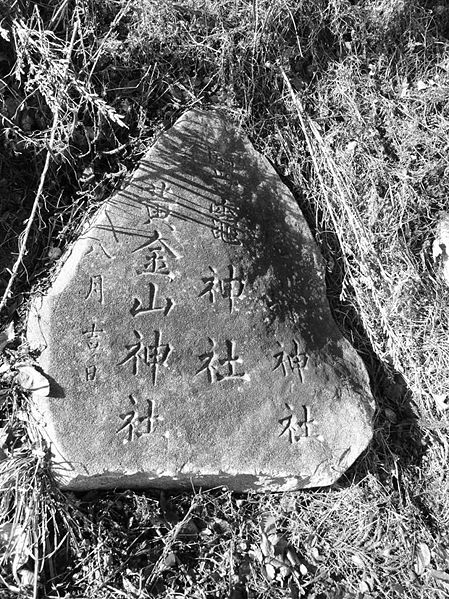 神社
竈神社
黄金山神社
八月吉日